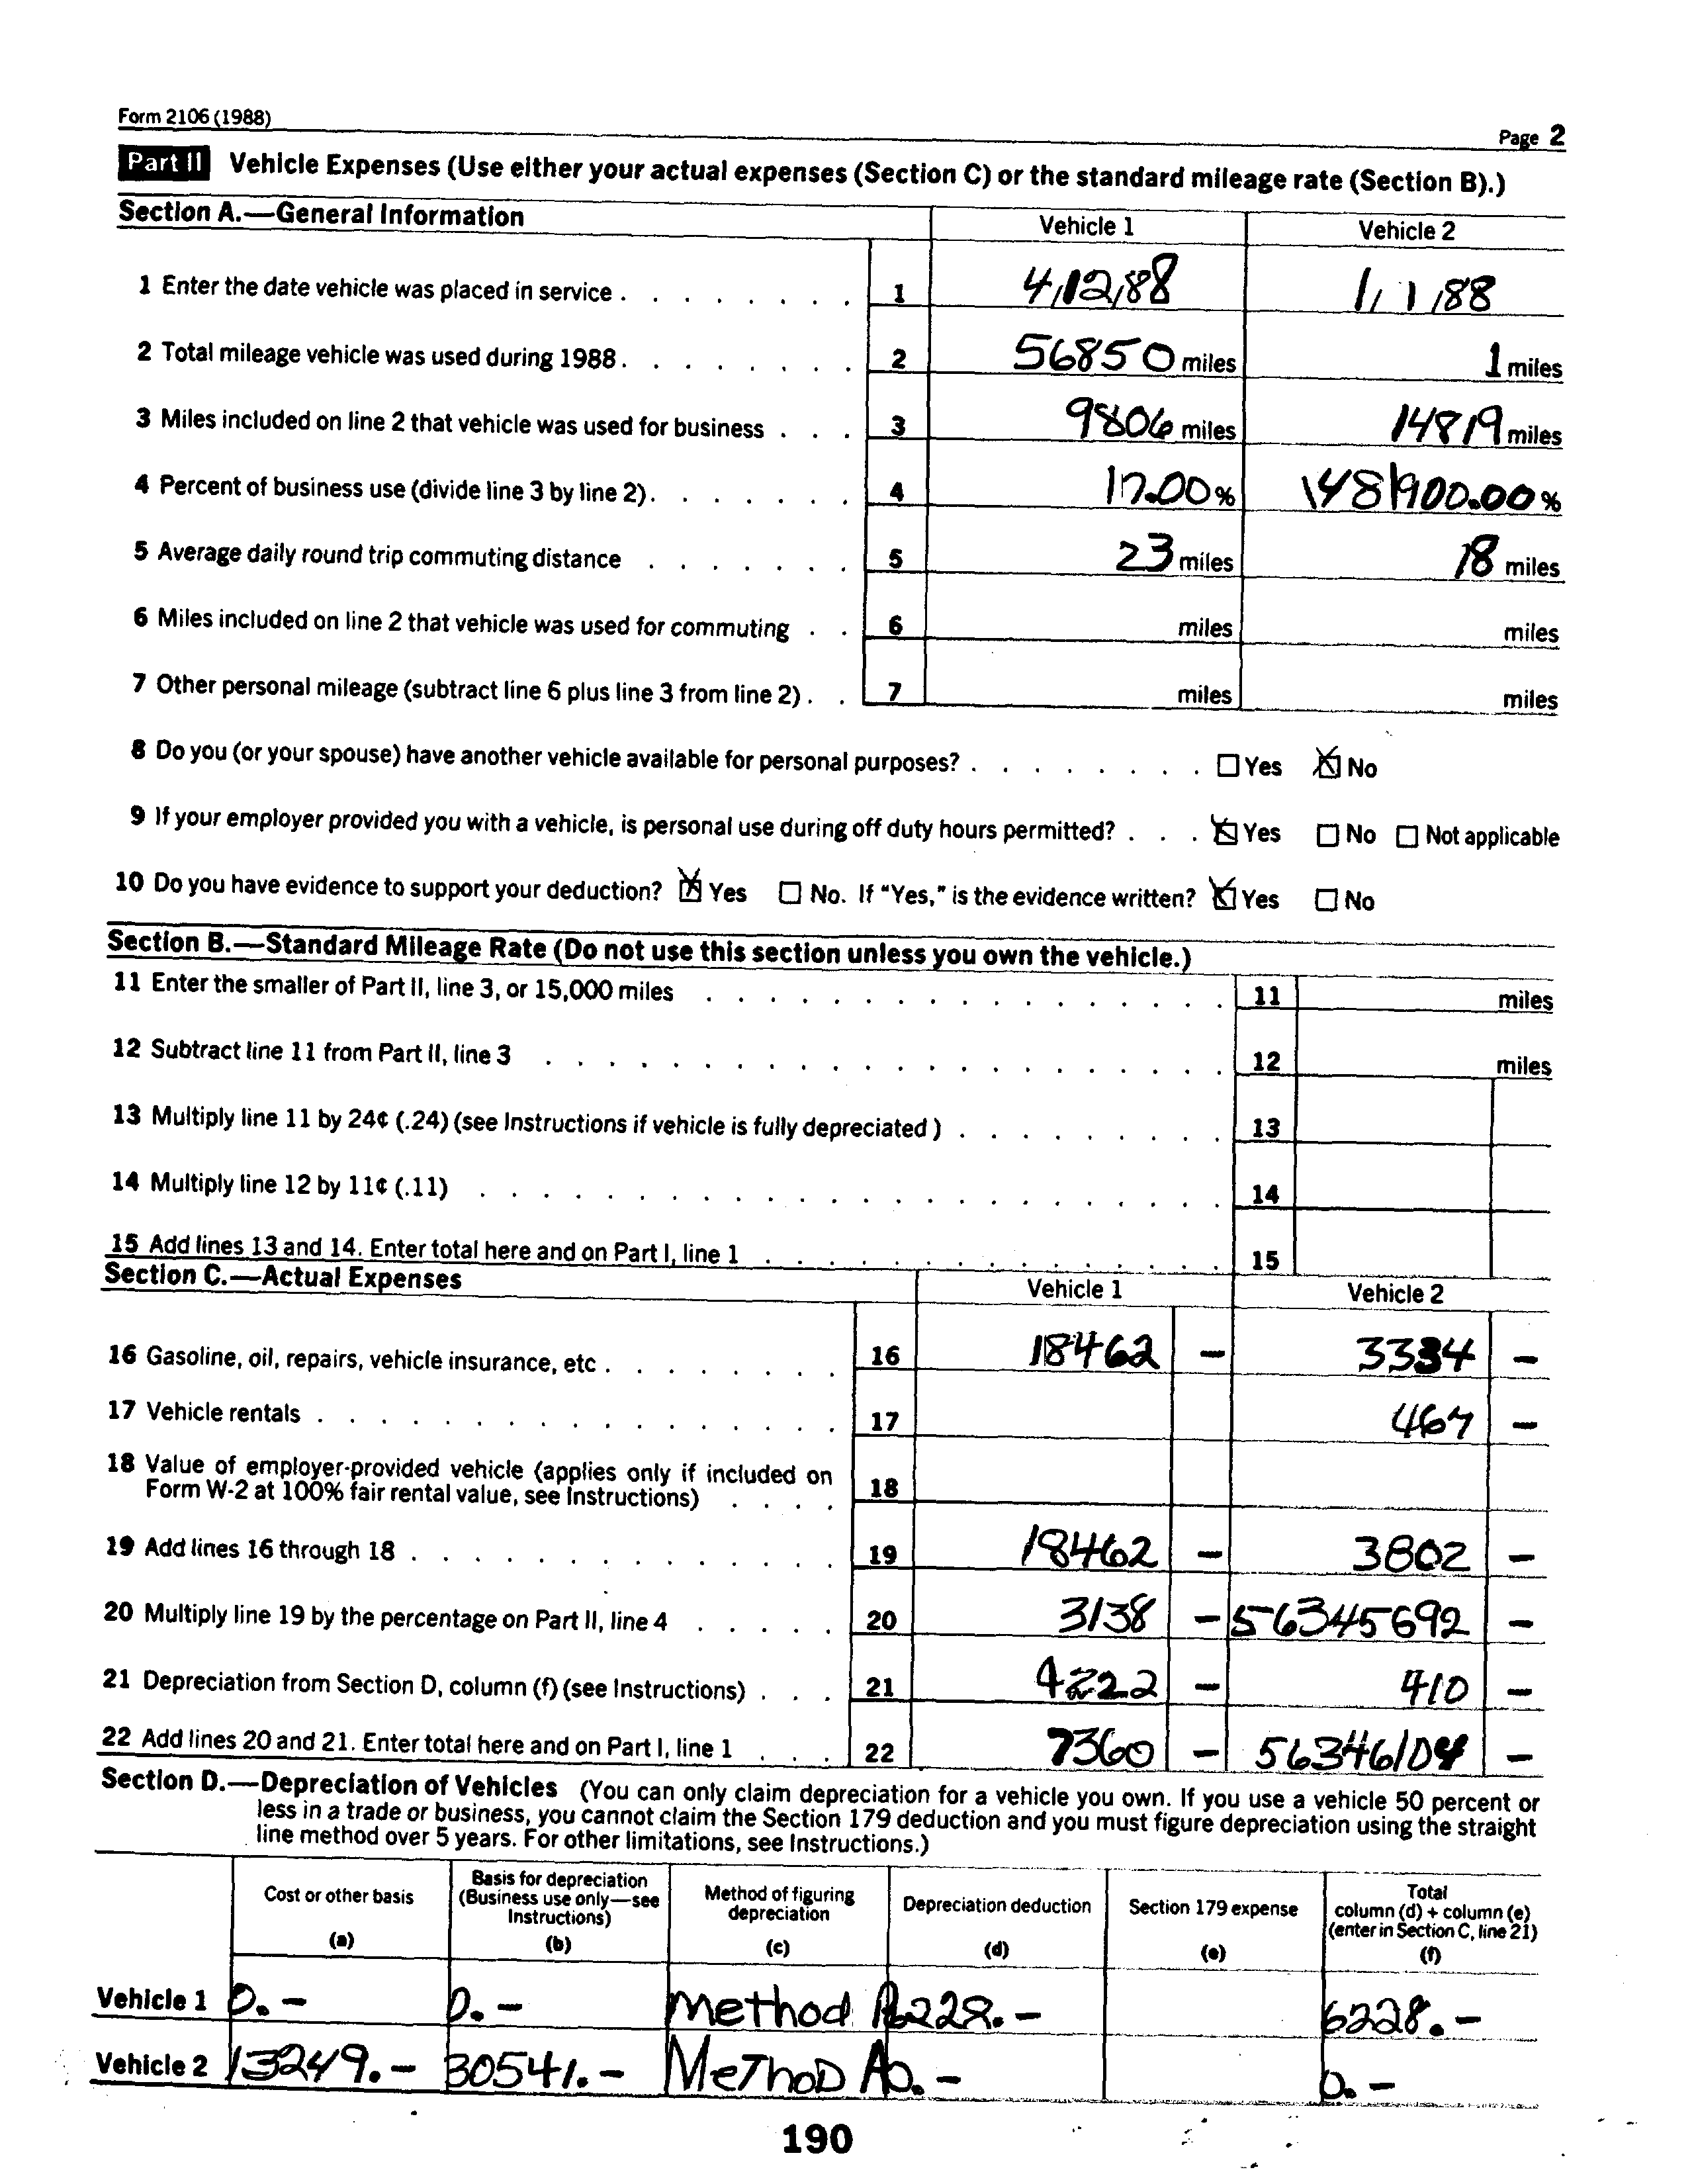 Form 2106 (1988)
Page 2
Part II Vehicle Expenses (Use either your actual expenses (Section C) or the standard mileage rate (Section B).)
Section A.—General Information Vehicle 1 Vehicle 2
1 Enter the date vehicle was placed in service . . . . . . . . 1 4/12/88 1/1/88
2 Total mileage vehicle was used during 1988 . . . . . . . . 2 56850 miles 1 miles
3 Miles included on line 2 that vehicle was used for business . . . 3 9806 miles 14819 miles
4 Percent of business use (divide line 3 by line 2) . . . . . . . 4 17.00 % 1481900.00 %
5 Average daily round trip commuting distance . . . . . . . 5 23 miles 18 miles
6 Miles included on line 2 that vehicle was used for commuting . . 6 miles miles
7 Other personal mileage (subtract line 6 plus line 3 from line 2) . . 7 miles miles
8 Do you (or your spouse) have another vehicle available for personal purposes? . . . . . . . . ☐ Yes ☒ No
9 If your employer provided you with a vehicle, is personal use during off duty hours permitted? . . . ☒ Yes ☐ No ☐ Not applicable
10 Do you have evidence to support your deduction? ☒ Yes ☐ No. If "Yes," is the evidence written? ☒ Yes ☐ No
Section B.—Standard Mileage Rate (Do not use this section unless you own the vehicle.)
11 Enter the smaller of Part II, line 3, or 15,000 miles . . . . . . . . 11 miles
12 Subtract line 11 from Part II, line 3 . . . . . . . . 12 miles
13 Multiply line 11 by 24¢ (.24) (see Instructions if vehicle is fully depreciated) . . . . . . . . . 13
14 Multiply line 12 by 11¢ (.11) . . . . . . . . 14
15 Add lines 13 and 14. Enter total here and on Part I, line 1 . . . . . . . . 15
Section C.—Actual Expenses Vehicle 1 Vehicle 2
16 Gasoline, oil, repairs, vehicle insurance, etc . . . . . . . . 16 18462 - 3334 -
17 Vehicle rentals . . . . . . . . 17 467 -
18 Value of employer-provided vehicle (applies only if included on
Form W-2 at 100% fair rental value, see Instructions) . . . . 18
19 Add lines 16 through 18 . . . . . . . . 19 18462 - 3802 -
20 Multiply line 19 by the percentage on Part II, line 4 . . . . . 20 3138 - 56345692 -
21 Depreciation from Section D, column (f) (see Instructions) . . . 21 4222 - 410 -
22 Add lines 20 and 21. Enter total here and on Part I, line 1 . . . 22 7360 - 56346104 -
Section D.—Depreciation of Vehicles (You can only claim depreciation for a vehicle you own. If you use a vehicle 50 percent or
less in a trade or business, you cannot claim the Section 179 deduction and you must figure depreciation using the straight
line method over 5 years. For other limitations, see Instructions.)
Cost or other basis
(a)
Basis for depreciation
(Business use only—see
Instructions)
(b)
Method of figuring
depreciation
(c)
Depreciation deduction
(d)
Section 179 expense
(e)
Total
column (d) + column (e)
(enter in Section C, line 21)
(f)
Vehicle 1 0. - 0. - Method 228. - 6228. -
Vehicle 2 13249. - 30541. - MeThoD A 0. - 0. -
190